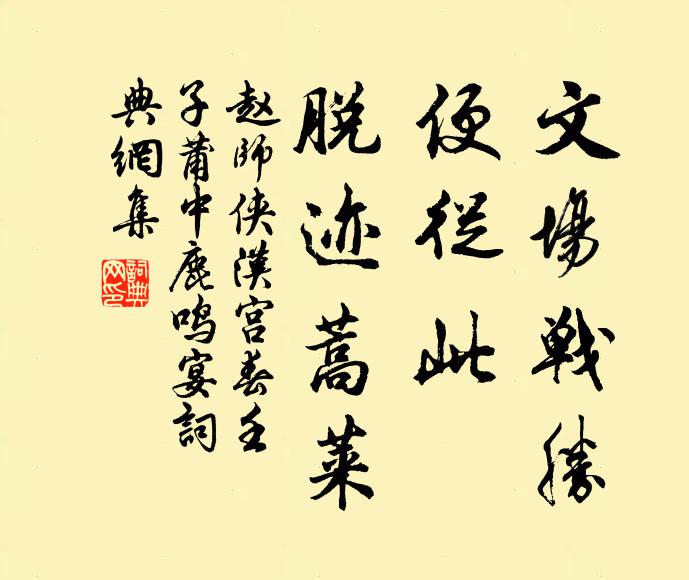 文場戰勝
便從此
脫迹蒿萊
赵師俠漢宮春壬
子莆中鹿鸣宴詞
典網集
詞典
网印